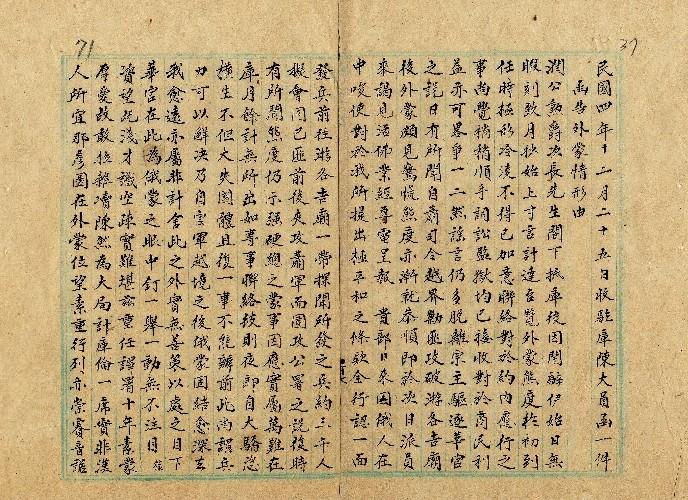 37
民國四年十二月二十五日收駐庫陳大員函一件
函告外蒙情形由
潤公勳爵次長先生閣下抵庫後因開辦伊始日無
暇刻致月抄始上寸言計達台覽外蒙態度於初到
任時極形冷淡不得已如意聯絡對於約內應行之
事尚覺稍稍順手詞訟監獄均已接收對於商民利
益亦可畧爭一二然謠言仍多脫離宗主驅逐華官
之說日有所聞自蕭司令越界勦匪攻破游各吉廟
後外蒙頗見驚慌態度亦漸就恭順即於次日派員
來謁見活佛業經專電呈報貴部日來因俄人在
中唆使對於我所提出極平和之條欵全行認一面
71
發兵前往游各吉廟一帶探聞所發之兵約三千人
擬會同已匪前後夾攻蕭軍而圍攻公署之說復時
有所聞態度仍示強硬總之蒙事因應實屬萬難在
庫月餘計無所出如專事聯絡技則夜郎自大驕恣
橫生不但大失國體且復一事不能辦前此尚謂兵
力可以解決乃自雲軍越境之後俄蒙固結愈深去
我愈遠亦屬非計舍此之外實無善策以處之目下
華官在此為俄蒙之眼中釘一舉一動無不注目
資望既淺才識空疎實難堪茲重任謬署十年素蒙
厚愛故敢披瀝瀆陳然為大局計庫倫一席實非漢
人所宜那彥圖在外蒙位望素重行列亦崇